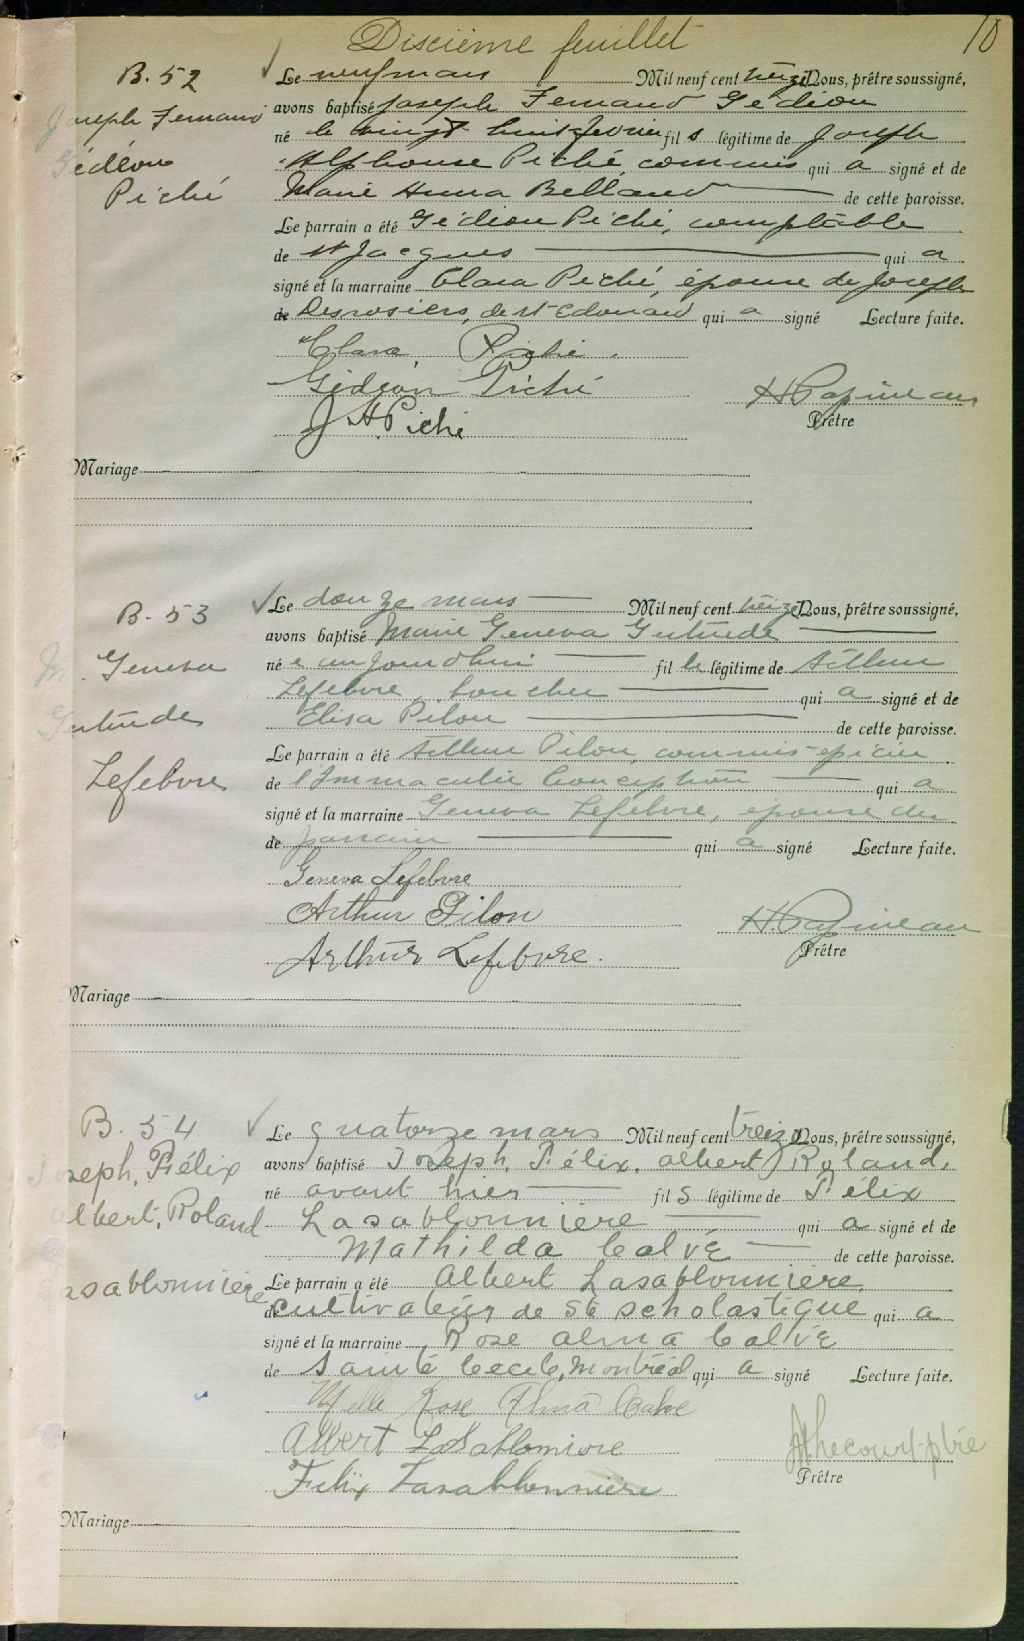 Discième feuillet 10
B. 52
Joseph Fernand
Gédéon
Piché
Le neuf mars Mil neuf cent treize Nous, prêtre soussigné,
avons baptisé Joseph Fernand Gédéon
né le vingt huit février fils légitime de Joseph
Alphonse Piché commis qui a signé et de
Marie Anna Belland de cette paroisse.
Le parrain a été Gédéon Piché, comptable
de St Jacques qui a
signé et la marraine Clara Piché, épouse de Joseph
de Desrosiers, de St Edouard qui a signé Lecture faite.
Clara Piché
Gédéon Piché
J A Piché
H Papineau
Prêtre
Mariage
B. 53
M. Geneva
Gertrude
Lefebvre
Le douze mars Mil neuf cent treize Nous, prêtre soussigné,
avons baptisé Marie Geneva Gertrude
née aujourdhui fille légitime de Arthur
Lefebvre, boucher qui a signé et de
Elisa Pilon de cette paroisse.
Le parrain a été Arthur Pilon, commis-épicier
de l'Immaculée Conception qui a
signé et la marraine Geneva Lefebvre, épouse du
de parrain qui a signé Lecture faite.
Geneva Lefebvre
Arthur Pilon
Arthur Lefebvre.
H. Papineau
Prêtre
Mariage
B. 54
Joseph, Félix
Albert, Roland
Lasablonnière
Le quatorze mars Mil neuf cent treize Nous, prêtre soussigné,
avons baptisé Joseph, Félix, Albert, Roland,
né avant hier fils légitime de Félix
Lasablonnière qui a signé et de
Mathilda Calvé de cette paroisse.
Le parrain a été Albert Lasablonnière,
de cultivateur de Ste Scholastique qui a
signé et la marraine Rose Alma Calvé
de Sainte Cecile, Montréal qui a signé Lecture faite.
Melle Rose Alma Calvé
Albert LaSablonniere
Felix Lasablonniere
Prêtre
Mariage